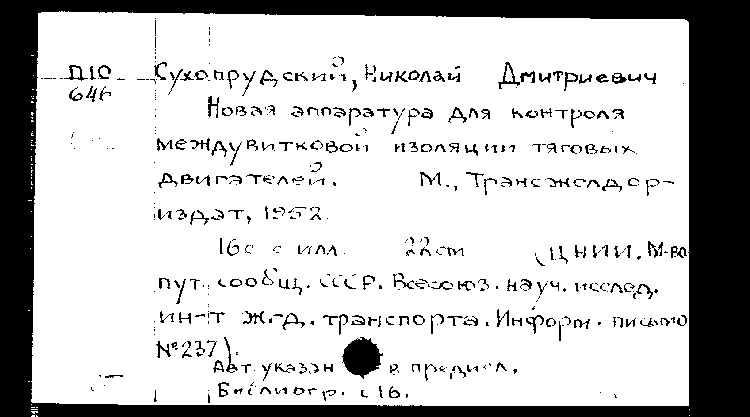 П10 Сухопрудский, Николай Дмитриевич
646
Новая аппаратура для контроля
междувитковой изоляции тяговых
двигателей. М., Трансжелдор-
издат, 1952.
16с с илл. 22 cm (ЦНИИ. М-во
пут. сообщ. СССР. Всесоюз. науч. исслед.
ин-т ж.-д. транспорта. Информ. письмо
№237).
Авт указан в предисл.
Библиогр. с 16.